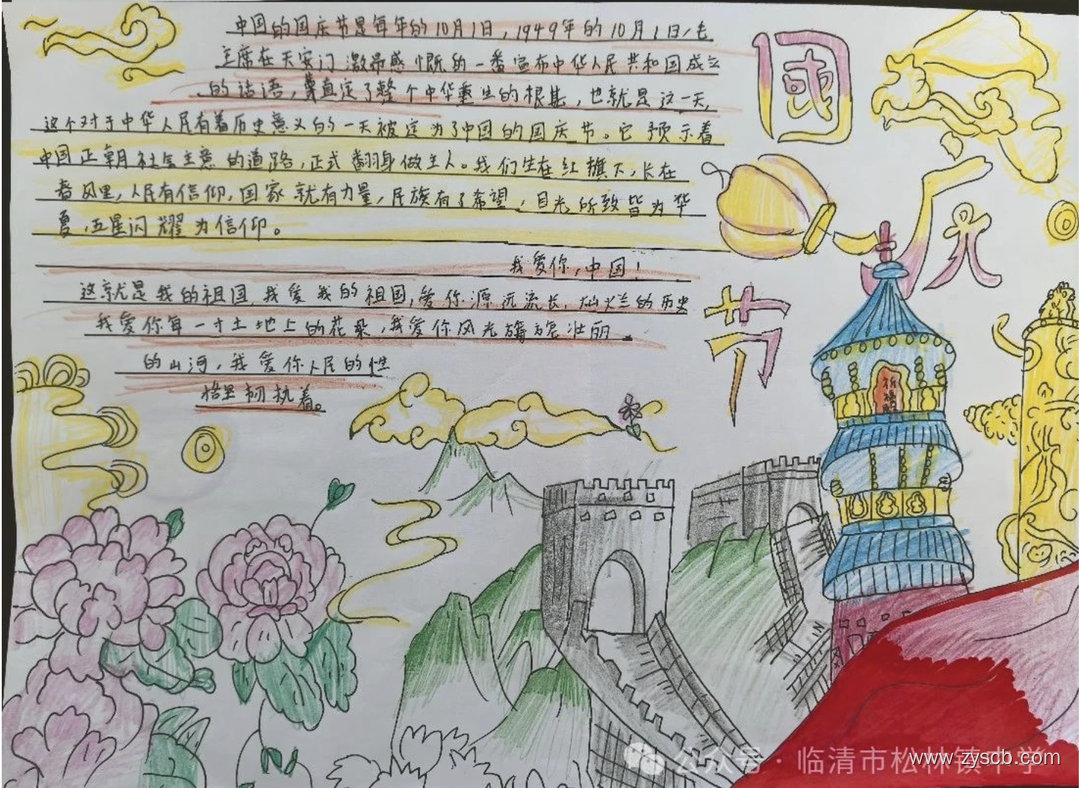 中国的国庆节是每年的10月1日，1949年的10月1日毛
主席在天安门激昂感慨的一番宣布中华人民共和国成立
的话语，奠定了整个中华重生的根基，也就是这一天，
这个对于中华人民有着历史意义的一天被定为了中国的国庆节。它预示着
中国正朝社会主意的道路，正式翻身做主人。我们生在红旗下，长在
春风里，人民有信仰，国家就有力量，民族有了希望，目光所致皆为华
夏，五星闪耀为信仰。
我爱你，中国！
这就是我的祖国，我爱我的祖国，爱你源远流长，灿烂的历史
我爱你每一寸土地上的花朵，我爱你风光旖旎壮丽
的山河，我爱你人民的性
格坚韧执着。
國
庆
节
祈福殿
公众号·临清市松林镇中学
www.zyscb.com